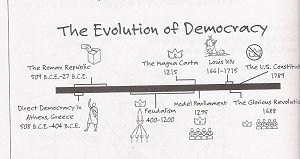 The Evolution of Democracy
The Roman Republic
509 B.C.E.-27 B.C.E.
The Magna Carta
1215
Louis XIV
1661-1715
The U.S. Constitu
1789
Direct Democracy in
Athens, Greece
508 B.C.E.-404 B.C.E.
Feudalism
400-1200
Model Parliament
1295
The Glorious Revolutio
1688